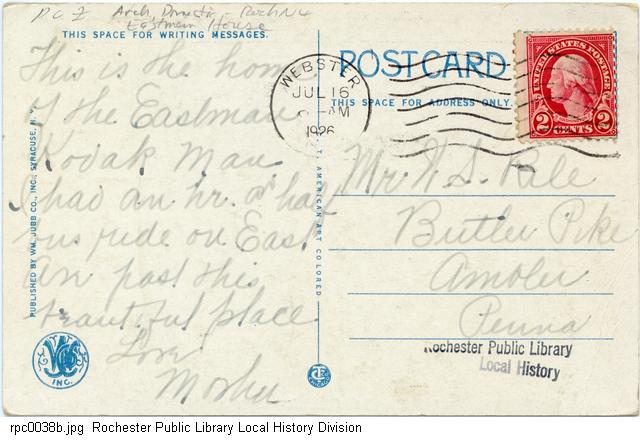 P C Z Arch, Domestic - Roch N Y
Eastman House
THIS SPACE FOR WRITING MESSAGES.
This is the home
of the Eastman
Kodak Man
I had an hr. & half
bus ride on East
Av past this
beautiful place
Love
Mother
PUBLISHED BY WM. JUBB CO., INC., SYRACUSE, N. Y.
INC.
AMERICAN ART COLORED
POST CARD
THIS SPACE FOR ADDRESS ONLY.
WEBSTER
JUL 16
AM
1926
UNITED STATES POSTAGE
2 CENTS 2
Mr. S.
Butler Pke
Ambler
Penna
Rochester Public Library
Local History
rpc0038b.jpg Rochester Public Library Local History Division